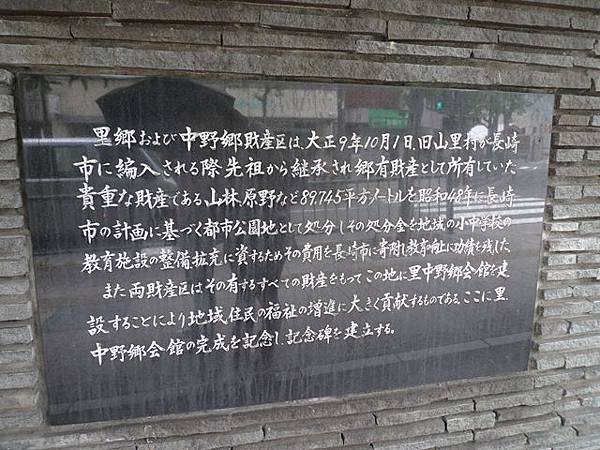 里郷および中野郷財産区は、大正9年10月1日、旧山里村が長崎
市に編入される際先祖から継承され郷有財産として所有していた
貴重な財産である、山林、原野など89,745平方メートルを昭和48年に長崎
市の計画に基づく都市公園地として処分しその処分金を地域の小中学校の
教育施設の整備拡充に資するためその費用を長崎市に寄附し教育向上に功績を残した
また両財産区はその有するすべての財産をもってこの地に里中野郷会館を建
設することにより地域住民の福祉の増進に大きく貢献するものである、ここに里、
中野郷会館の完成を記念し、記念碑を建立する。